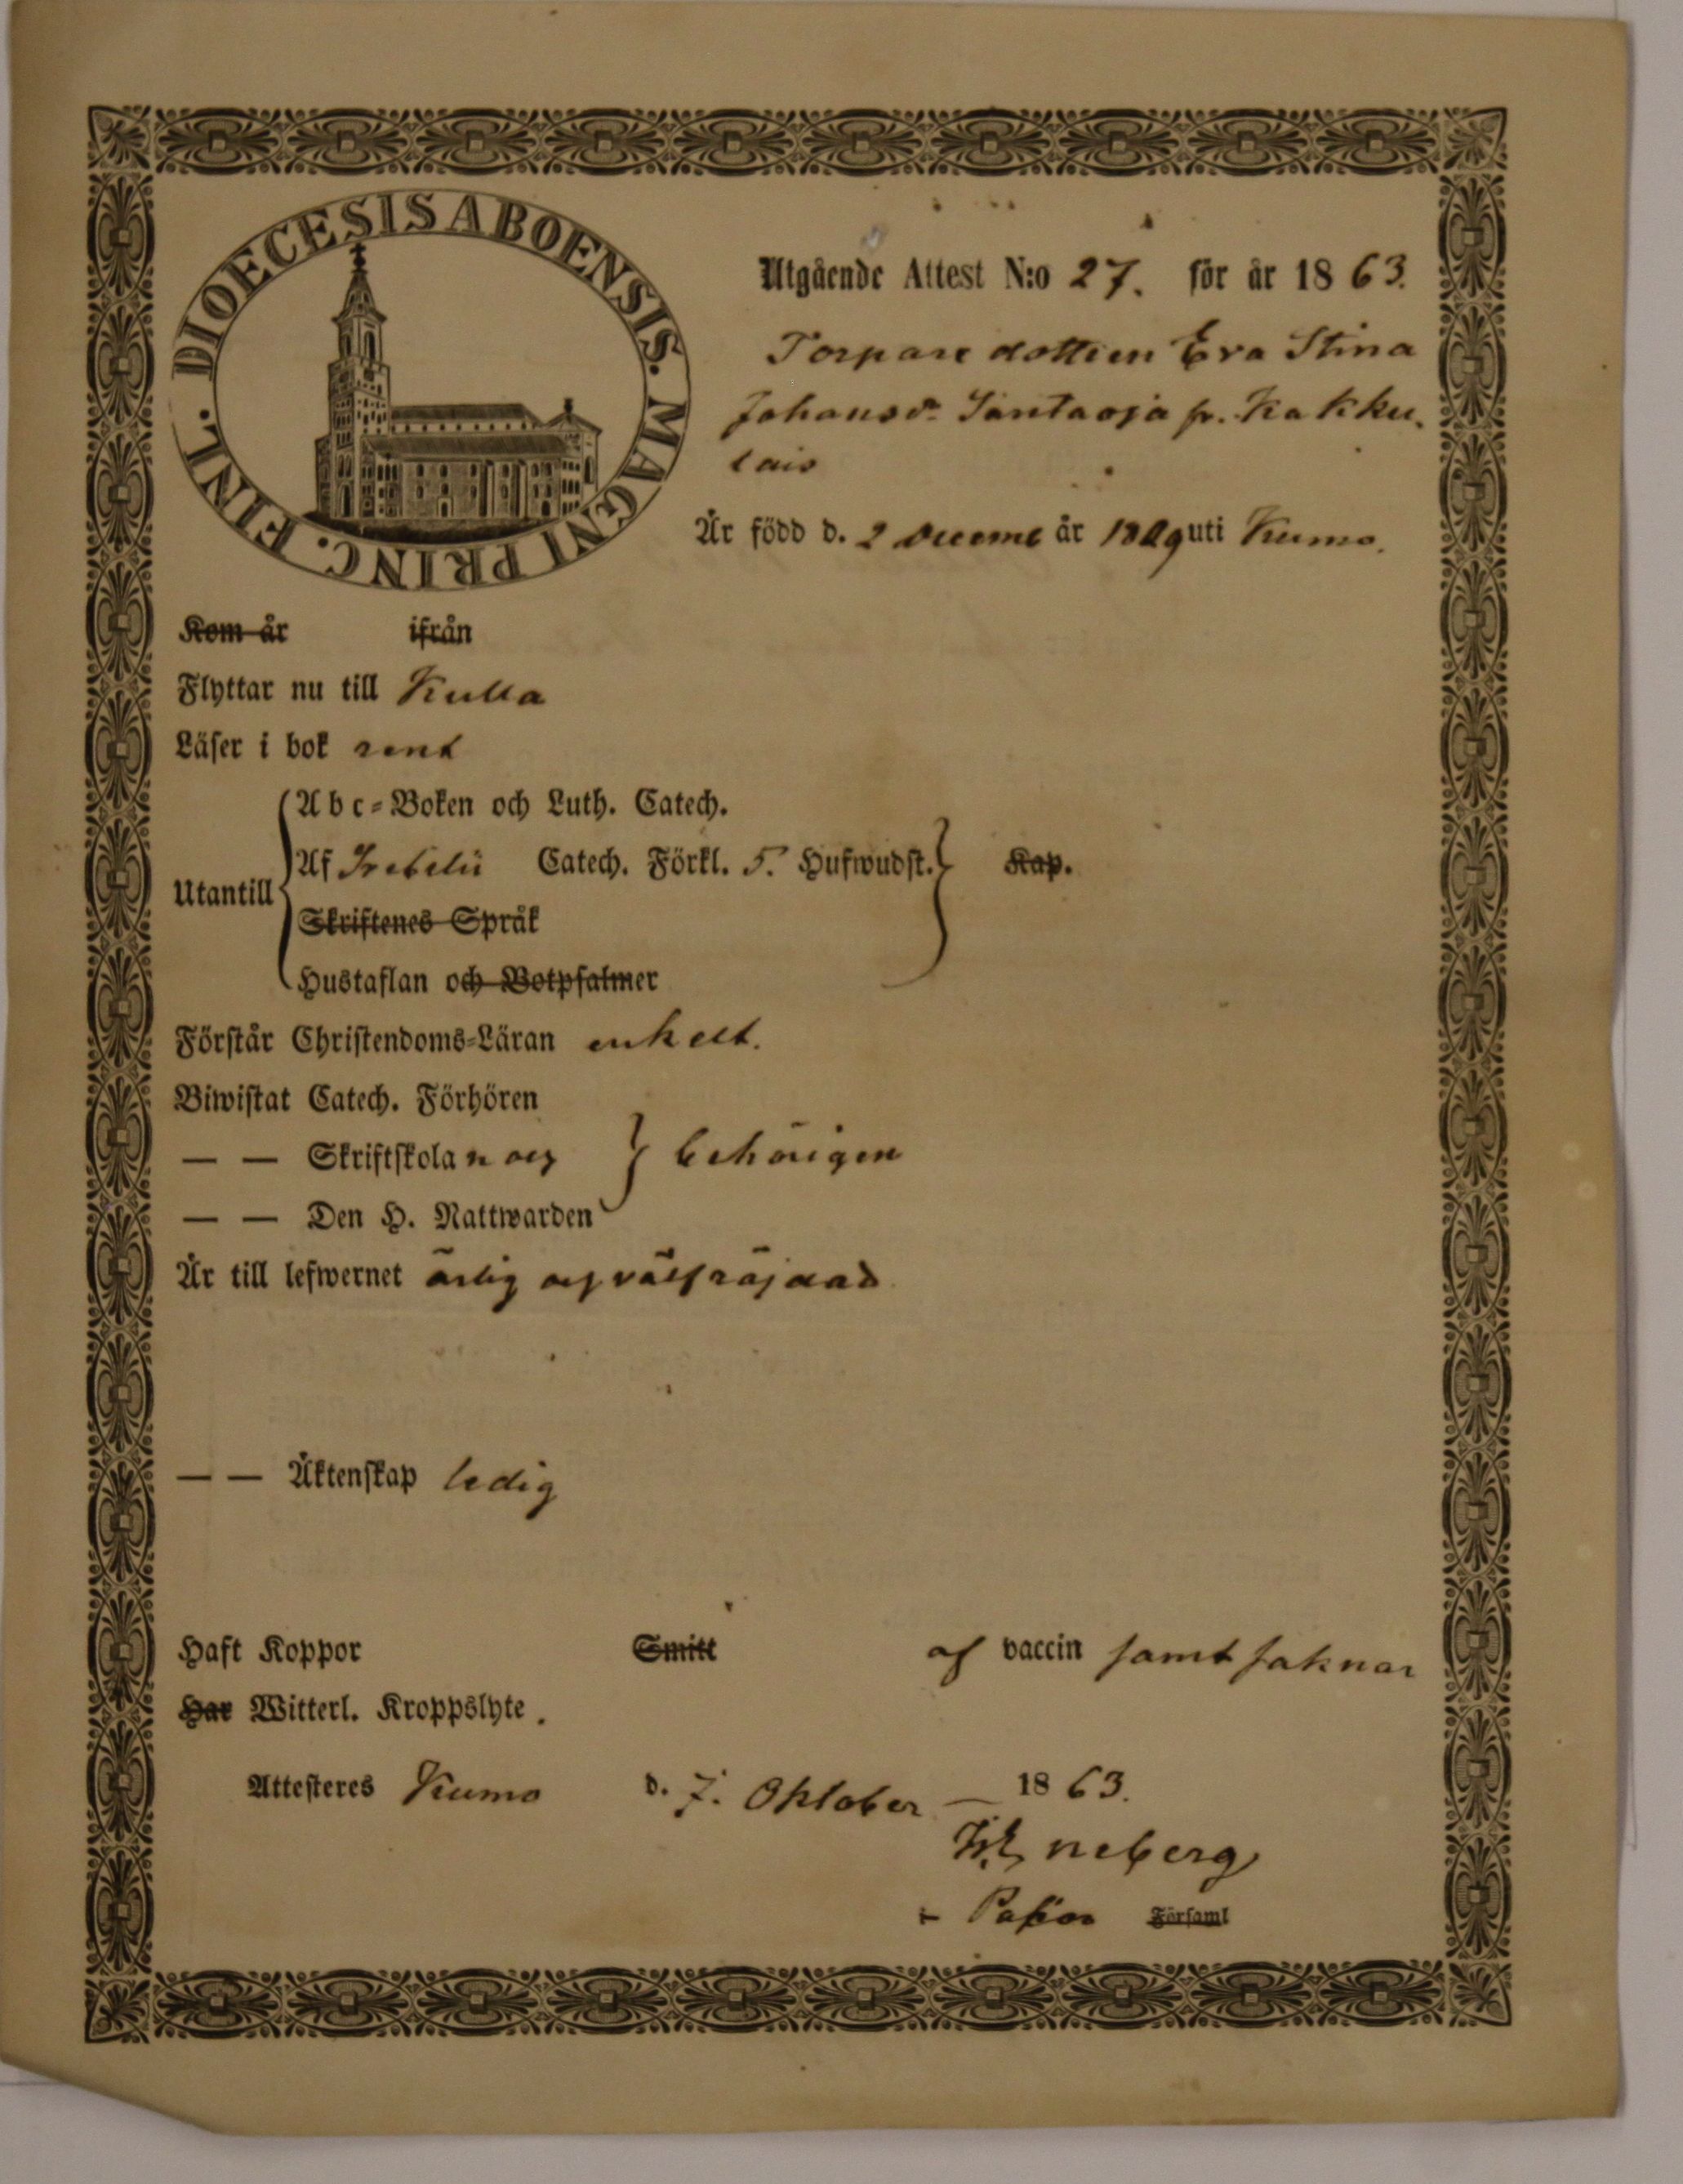 DIOECESIS ABOENSIS. MAGNI PRINC. FINL.
Utgående Attest N:o 27. för år 1863.
Torpare dottren Eva Stina
Johansdr Santaoja fr. Kakku-
lais
Är född d. 2 Decemb år uti Kumo.
Kom år ifrån
Flyttar nu till Kulla
Läser i bok rent
Utantill
Abc-Boken och Luth. Catech.
Af Catech. Förkl. 5. Hufwudst. Kap.
Skriftenes Språk
Hustaflan och Botpsalmer
Förstår Christendoms-Läran enkelt.
Biwistat Catech. Förhören
— — Skriftskolan och behörigen
— — Den H. Nattwarden
Är till lefwernet ärlig och välfräjdad
— — Äktenskap ledig
Haft Koppor Smitt af vaccin samt saknar
Har Witterl. Kroppslyte.
Attesteres Kumo d. 7. Oktober — 1863.
neberg
Församl